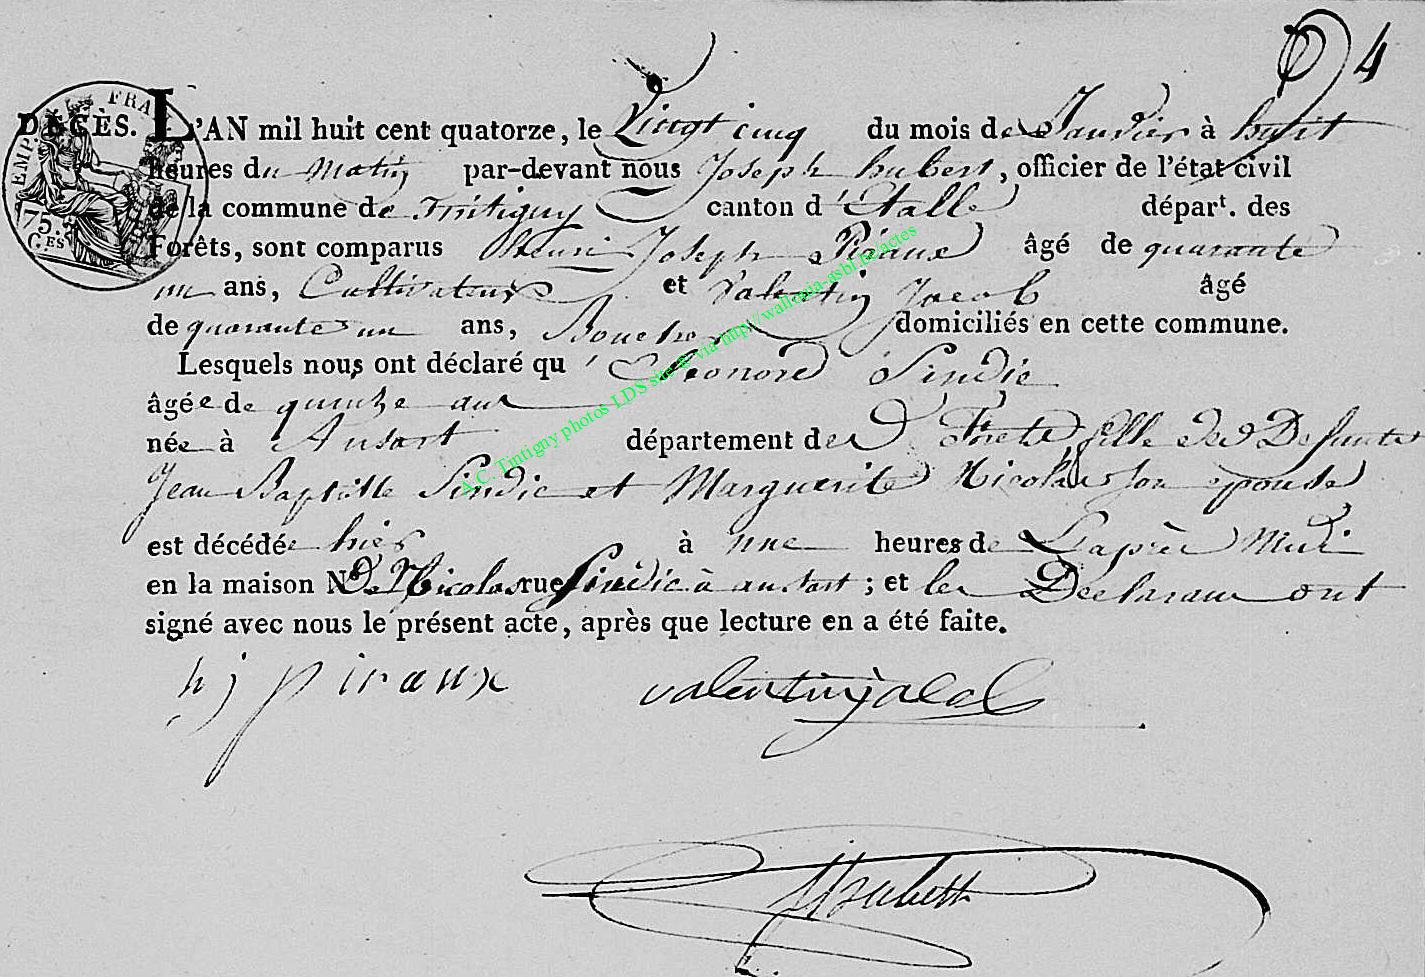 4
DÉCÈS. L'AN mil huit cent quatorze, le Vingt cinq du mois de Janvier à huit
heures du Matin par-devant nous Joseph hubert, officier de l'état civil
de la commune de Tintigny canton d'Etalle départ. des
Forêts, sont comparus Henri Joseph Piraux âgé de quarante
un ans, Cultivateur et Valentin Jacob âgé
de quarante un ans, Boucher domiciliés en cette commune.
Lesquels nous ont déclaré qu'Eleonore Sindic
âgée de quinze ans
née à Ansart département des Forets fille des Defunts
Jean Baptiste Sindic et Marguerite Nicolas son epouse
est décédée hier à une heures de L'après Midi
en la maison No De Nicolas rue Sindic à ansart ; et les Declarans ont
signé avec nous le présent acte, après que lecture en a été faite.
hj piraux valentin jacob
EMP FRA
75
CES
A.C. Tintigny photos LDS site & via http://wallonia-asbl.be/actes